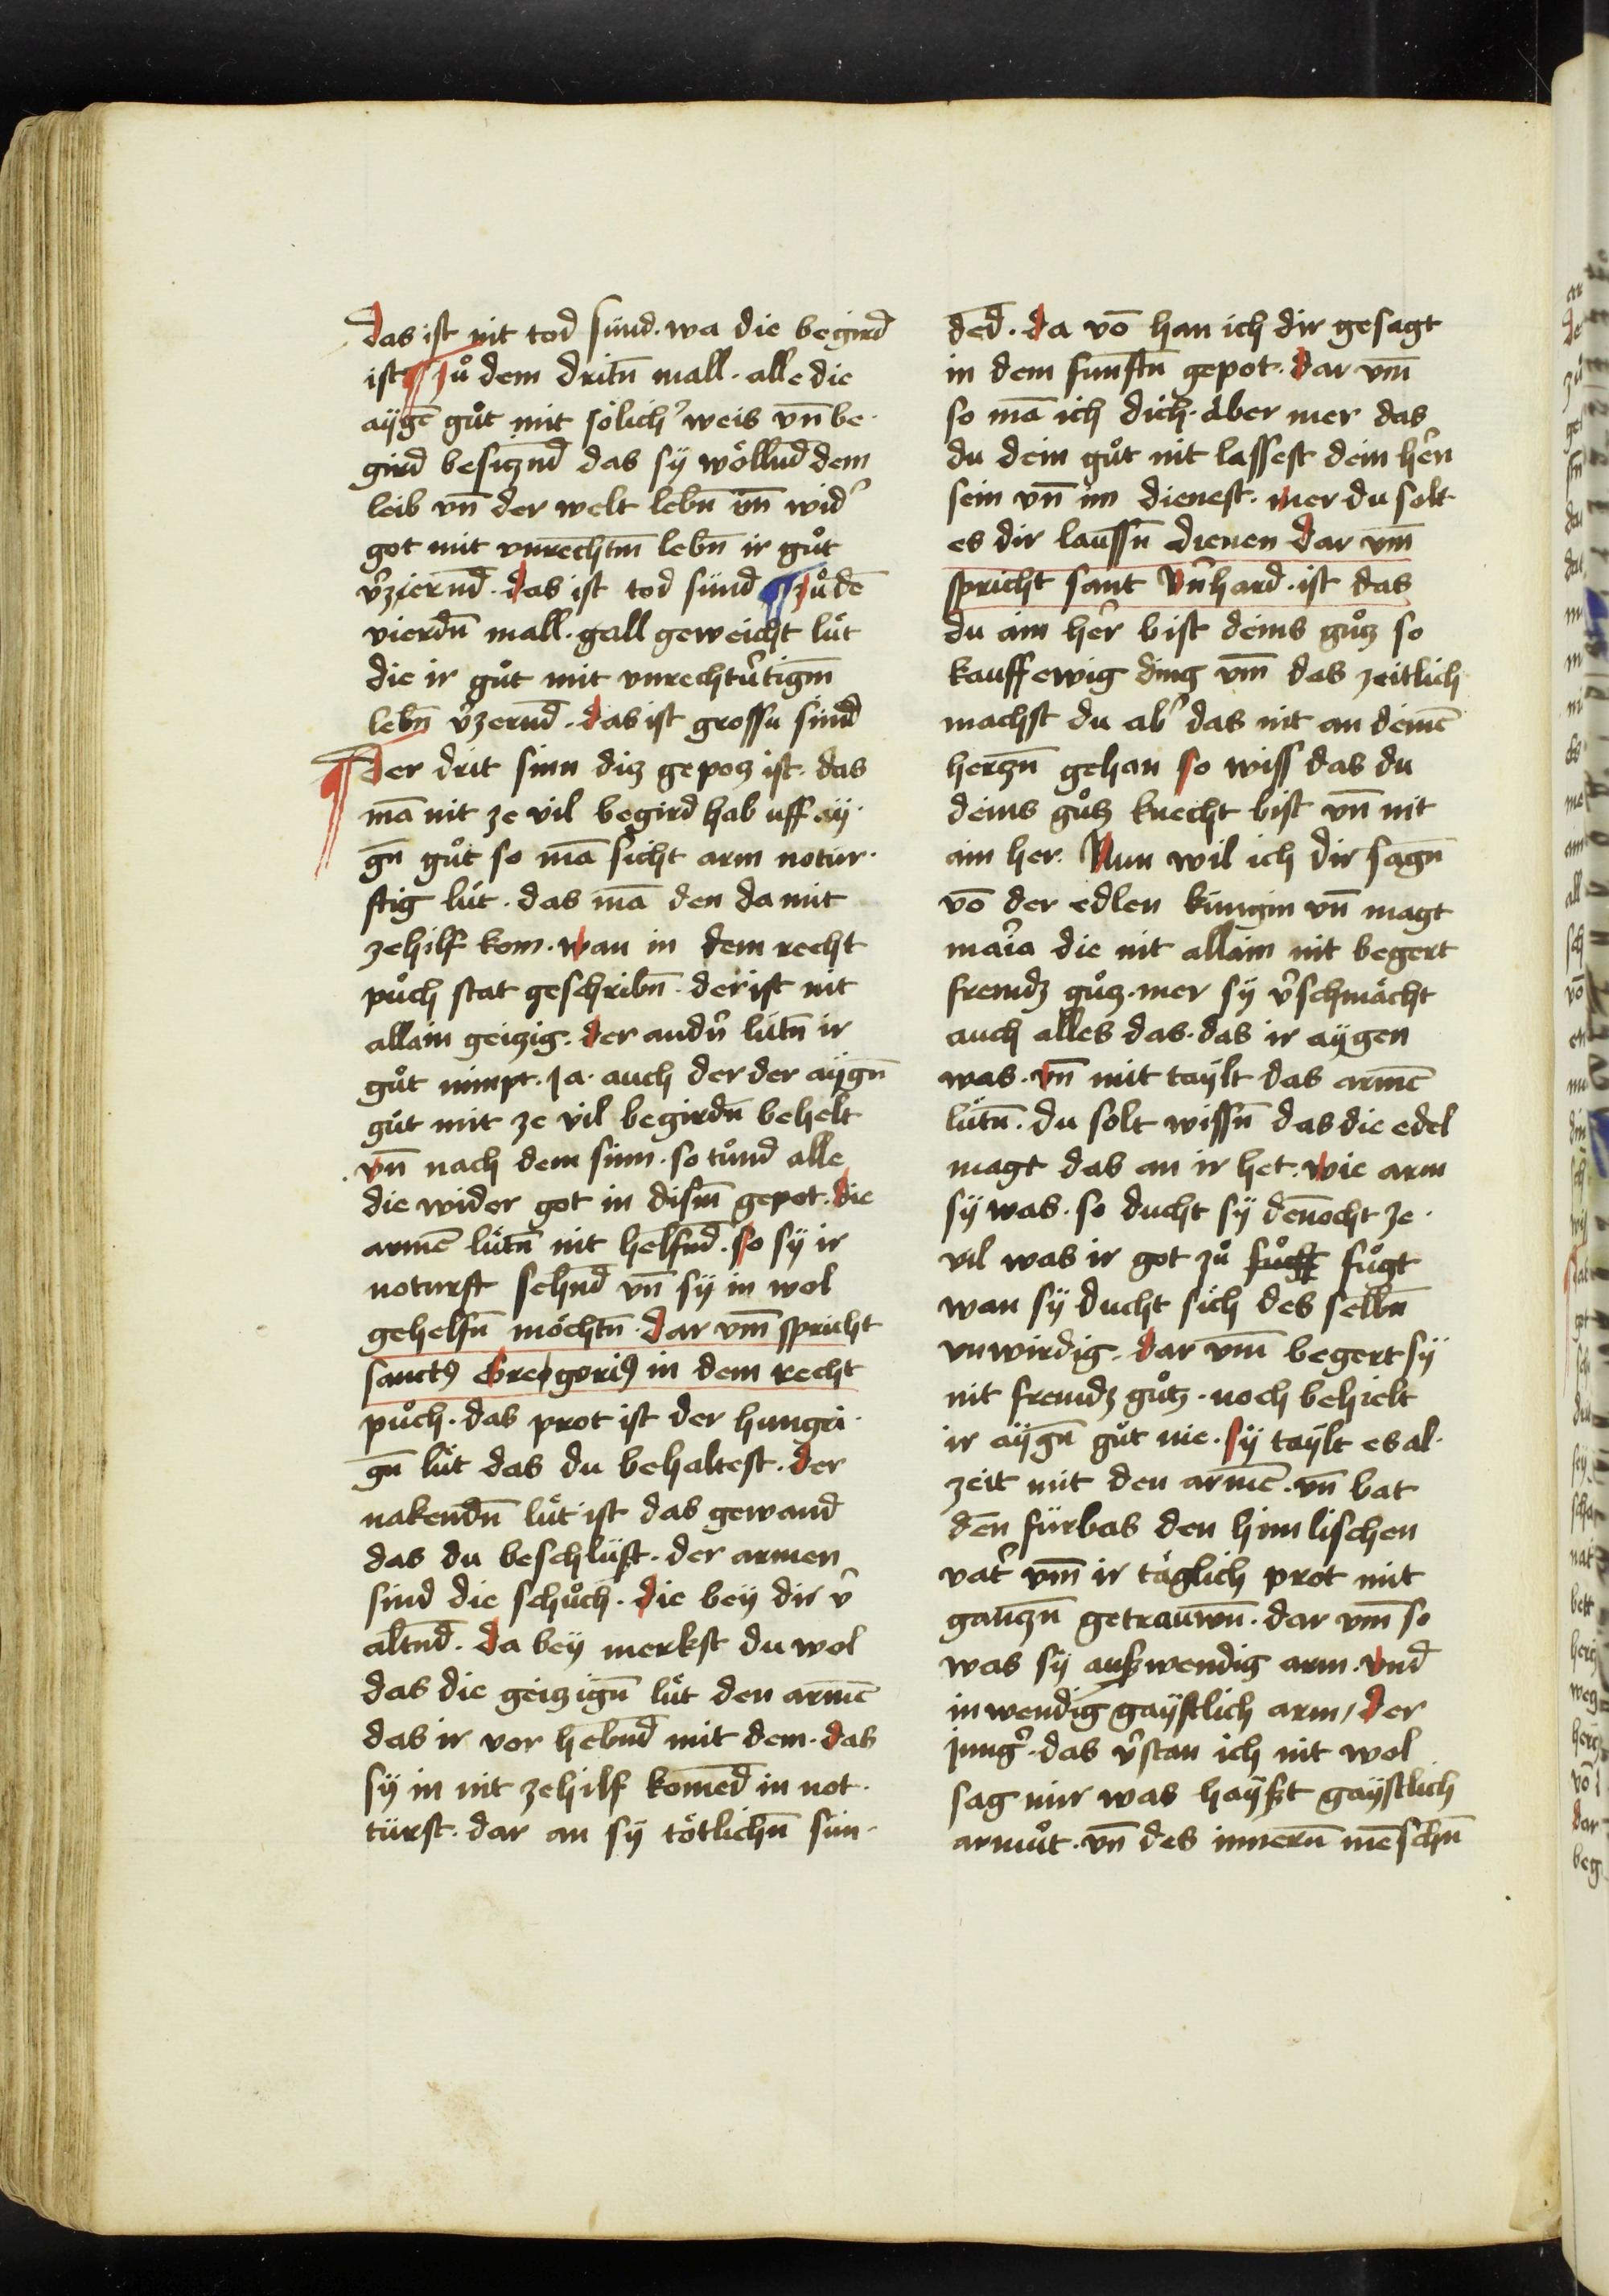 das ist nit tod sünd · wa die begird
ist ¶ zů dem dritn̄ mall · alle die
aygē gůt mit sölichʼ weis vn̄ be·
gird besiczn̄d das sÿ wölln̄d dem
leib vn̄ der welt lebn̄ vn̄ widʼ
got mit vnrechtm̄ lebn̄ ir gůt
vʼziern̄d · das ist tod sünd ¶ zů dē
vierdn̄ mall · gall geweicht lüt
die ir gůt mit vnrechtvʼtigm̄
lebn̄ vʼzern̄d · das ist grossu sünd
¶ Der drit sinn dicz gepocz ist · das
mā nit ze vil begird hab uff aÿ·
gn̄ gůt so mā sicht arm notür·
ftig lüt · das mā den da mit
zehilf kom · wan in dem recht
půch stat geschribn̄ · der ist nit
allain geiczig · der andʼn lütn̄ ir
gůt nimpt · ja · auch der der aÿgn̄
gůt mit ze vil begirdn̄ behelt
vn̄ nach dem sinn · so tůnd alle
die wider got in dism̄ gepot · die
armē lütn̄ nit helfn̄d · so sÿ ir
noturft sehn̄d vn̄ sÿ in wol
gehelfn̄ möchtn̄ · dar vm̄ spricht
sanctꝰ Gregoriꝰ in dem recht
půch · das prot ist der hungri·
gn̄ lüt das du behaltest · der
nakendn̄ lüt ist das gewand
das du beschlüst · der armen
sind die schůch · die beÿ dir vʼ
altn̄d · da beÿ merkst du wol
das die geiczign̄ lüt den armē
das ir vor hebn̄d mit dem · das
sÿ in nit zehilf komēd in not·
türft · dar an sÿ tötlichn̄ sün·
dēd · da vō han ich dir gesagt
in dem funftn̄ gepot · dar vm̄
so mā ich dich · aber mer das
du dein gůt nit lassest dein hʼen
sein vn̄ im dienest · mer du solt
es dir laussn̄ dienen dar vm̄
spricht sant vʼnhard · ist das
du ain hʼer bist deins gůcz so
kauff ewig ding vm̄ das zeitlich
machst du abʼ das nit an deinē
herczn̄ gehan so wiss das du
deins gůcz knecht bist vn̄ nit
ain her · Nun wil ich dir sagn̄
vō der edlen küngin vn̄ magt
maʼia die nit allain nit begert
fremdz gůcz · mer sÿ vʼschmächt
auch alles das · das ir aÿgen
was · vn̄ mit taÿlt das armē
lütn̄ · du solt wissn̄ das die edel
magt das an ir het · wie arm
sÿ was · so ducht sÿ dēnocht ze·
vil was ir got zů fügt
wan sÿ ducht sich des selbn̄
vnwirdig · dar vm̄ begert sÿ
nit fremdz gůtz · noch behielt
ir aÿgn̄ gůt nie · sÿ taÿlt es al·
zeit mit den armē · vn̄ bat
dēn fürbas den himlischen
vatʼ vm̄ ir täglich prot mit
ganczn̄ getrauwn̄ · dar vm̄ so
was sÿ auszwendig arm · vnd̄
inwendig gaÿstlich arm / der
jungʼ · das vʼstan ich nit wol
sag mir was haÿszt gaÿstlich
armůt · vn̄ des innern̄ mēschn̄